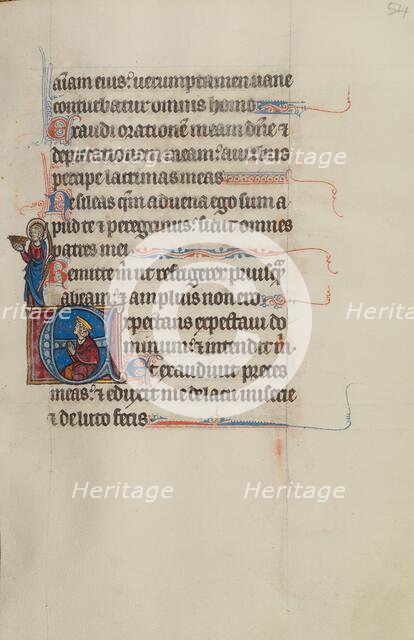 54
aīam eius: uerumptamen uane
conturbatur omnis homo
Exaudi orationē meam dn̄e ⁊
deprecationem meam: auribus
percipe lacrimas meas
Ne sileas qm̄ aduena ego sum a
pud te ⁊ peregrinus: sicut omnes
patres mei
Remitte m̄ ut refrigerer priusq̄
abeam: ⁊ amplius non ero
Expectans expectaui do
minum: ⁊ intendit m̄
Et exaudiuit preces
meas: ⁊ eduxit me de lacu miserie
⁊ de luto fecis
Heritage Heritage
Heritage Heritage
Heritage Heritage